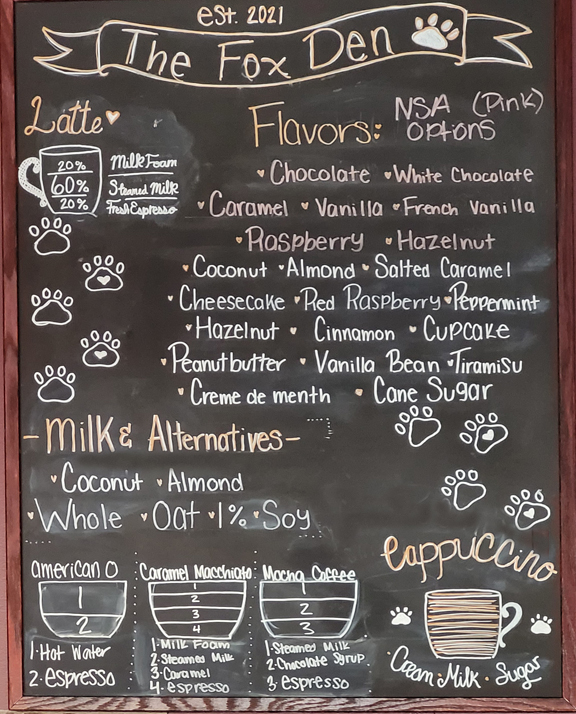 est. 2021
The Fox Den
Latte
20% Milk Foam
60% Steamed Milk
20% Fresh Espresso
Flavors: NSA (Pink) options
Chocolate White Chocolate
Caramel Vanilla French Vanilla
Raspberry Hazelnut
Coconut Almond Salted Caramel
Cheesecake Red Raspberry Peppermint
Hazelnut Cinnamon Cupcake
Peanutbutter Vanilla Bean Tiramisu
Creme de menth Cane Sugar
-Milk & Alternatives-
Coconut Almond
Whole Oat 1% Soy
americanO
1
2
1·Hot Water
2·espresso
Caramel Macchiato
1
2
3
4
1·Milk Foam
2·Steamed Milk
3·Caramel
4·espresso
Mocha Coffee
1
2
3
1·Steamed Milk
2·Chocolate Syrup
3·espresso
Cappuccino
Cream·Milk·Sugar